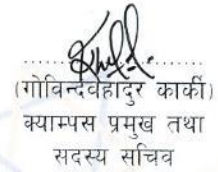 (गोविन्दवहादुर कार्की)
क्याम्पस प्रमुख तथा
सदस्य सचिव